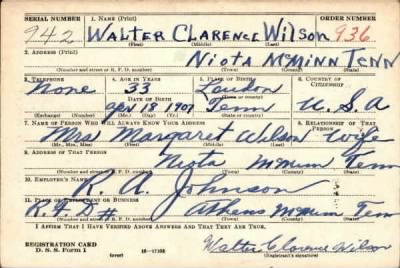 SERIAL NUMBER 1. NAME (Print)
942 WALTER CLARENCE WILSON 936
(First) (Middle) (Last)
2. ADDRESS (Print)
NIOTA McMINN TENN
(Number and street or R. F. D. number) (Town) (County) (State)
3. TELEPHONE 4. AGE IN YEARS 5. PLACE OF BIRTH 6. COUNTRY OF CITIZENSHIP
None 33 Loudon
DATE OF BIRTH (Town or county)
18 1907 Tenn U.S.A
(Exchange) (Number) (Mo.) (Day) (Yr.) (State or country)
7. NAME OF PERSON WHO WILL ALWAYS KNOW YOUR ADDRESS 8. RELATIONSHIP OF THAT PERSON
Mrs Margaret Wilson wife
(Mr., Mrs., Miss) (First) (Middle) (Last)
9. ADDRESS OF THAT PERSON
Niota McMinn Tenn
(Number and street or R. F. D. number) (Town) (County) (State)
10. EMPLOYER'S NAME
R. A. Johnson
11. PLACE OF EMPLOYMENT OR BUSINESS
R.F.D # Athens McMinn Tenn
(Number and street or R. F. D. number) (Town) (County) (State)
I AFFIRM THAT I HAVE VERIFIED ABOVE ANSWERS AND THAT THEY ARE TRUE.
REGISTRATION CARD
D. S. S. Form 1 (over) 16-17105
Walter Clarence Wilson
(Registrant's signature)